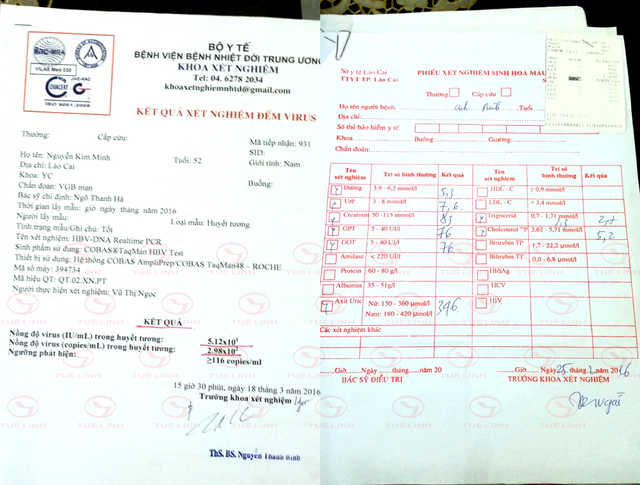 BỘ Y TẾ
BỆNH VIỆN BỆNH NHIỆT ĐỚI TRUNG ƯƠNG
KHOA XÉT NGHIỆM
Tel: 04. 6278 2034
khoaxetnghiemnhtd@gmail.com
VILAS Med 030
JAS-ANZ
QUACERT
ISO 9001:2008
KẾT QUẢ XÉT NGHIỆM ĐẾM VIRUS
Thường: Cấp cứu: Mã tiếp nhận: 931
SID:
Họ tên: Nguyễn Kim Minh Tuổi: 52 Giới tính: Nam
Địa chỉ: Lào Cai
Khoa: YC Buồng:
Chẩn đoán: VGB mạn
Bác sỹ chỉ định: Ngô Thanh Hà
Thời gian lấy mẫu: giờ ngày tháng năm 2016
Người lấy mẫu: Loại mẫu: Huyết tương
Tình trạng mẫu/Ghi chú: Tốt
Tên xét nghiệm: HBV-DNA Realtime PCR
Sinh phẩm sử dụng: COBAS®TaqMan HBV Test
Thiết bị sử dụng: Hệ thống COBAS AmpliPrep/COBAS TaqMan48 – ROCHE
Mã số máy: 394734
Mã hiệu QT: QT.02.XN.PT
Người thực hiện xét nghiệm: Vũ Thị Ngọc
KẾT QUẢ
Nồng độ virus (IU/mL) trong huyết tương: 5.12x10
Nồng độ virus (copies/mL) trong huyết tương: 2.98x10
Ngưỡng phát hiện: ≥116 copies/ml
15 giờ 30 phút, ngày 18 tháng 3 năm 2016
Trưởng khoa xét nghiệm
ThS. BS. Nguyễn Thanh Bình
Sở y tế Lào Cai PHIẾU XÉT NGHIỆM SINH HOÁ MÁU
TTYT TP. Lào Cai
Thường Cấp cứu
Họ tên người bệnh Tuổi
Địa chỉ
Số thẻ bảo hiểm y tế:
Khoa Buồng: Giường:
Chẩn đoán:
Tên xét nghiệm Trị số bình thường Kết quả Tên xét nghiệm Trị số bình thường Kết quả
Đường 3,9 - 6,2 mmol/l 5,3 HDL - C ≥ 0,9 mmol/l
Urê 3 - 8 mmol/l 7,6 LDL - C < 3,4 mmol/l
Creatinin 50 -115 mmol/l 83 Triglycerid 0,7 - 1,71 mmol/l
GPT 5 - 40 U/l 76 Cholesterol TP 2,62 - 5,71 mmol/l 5,2
GOT 5 - 40 U/l 76 Bitirubin TP 1,7 - 22,2 μmol/l
Amilase < 220 U/l Bitirubin TT 0,0 - 6,8 mmol/l
Protein 60 - 80 g/l HBsAg
Albumin 35 - 51g/l HCV
Axit Uric Nữ: 150 - 360 μmol/l 396 HIV
Nam: 180 - 420 μmol/l
Các xét nghiệm khác
Giờ Ngày tháng năm 20 Giờ Ngày 25 tháng 2 năm 2016
BÁC SỸ ĐIỀU TRỊ TRƯỞNG KHOA XÉT NGHIỆM
TUỆ LINH